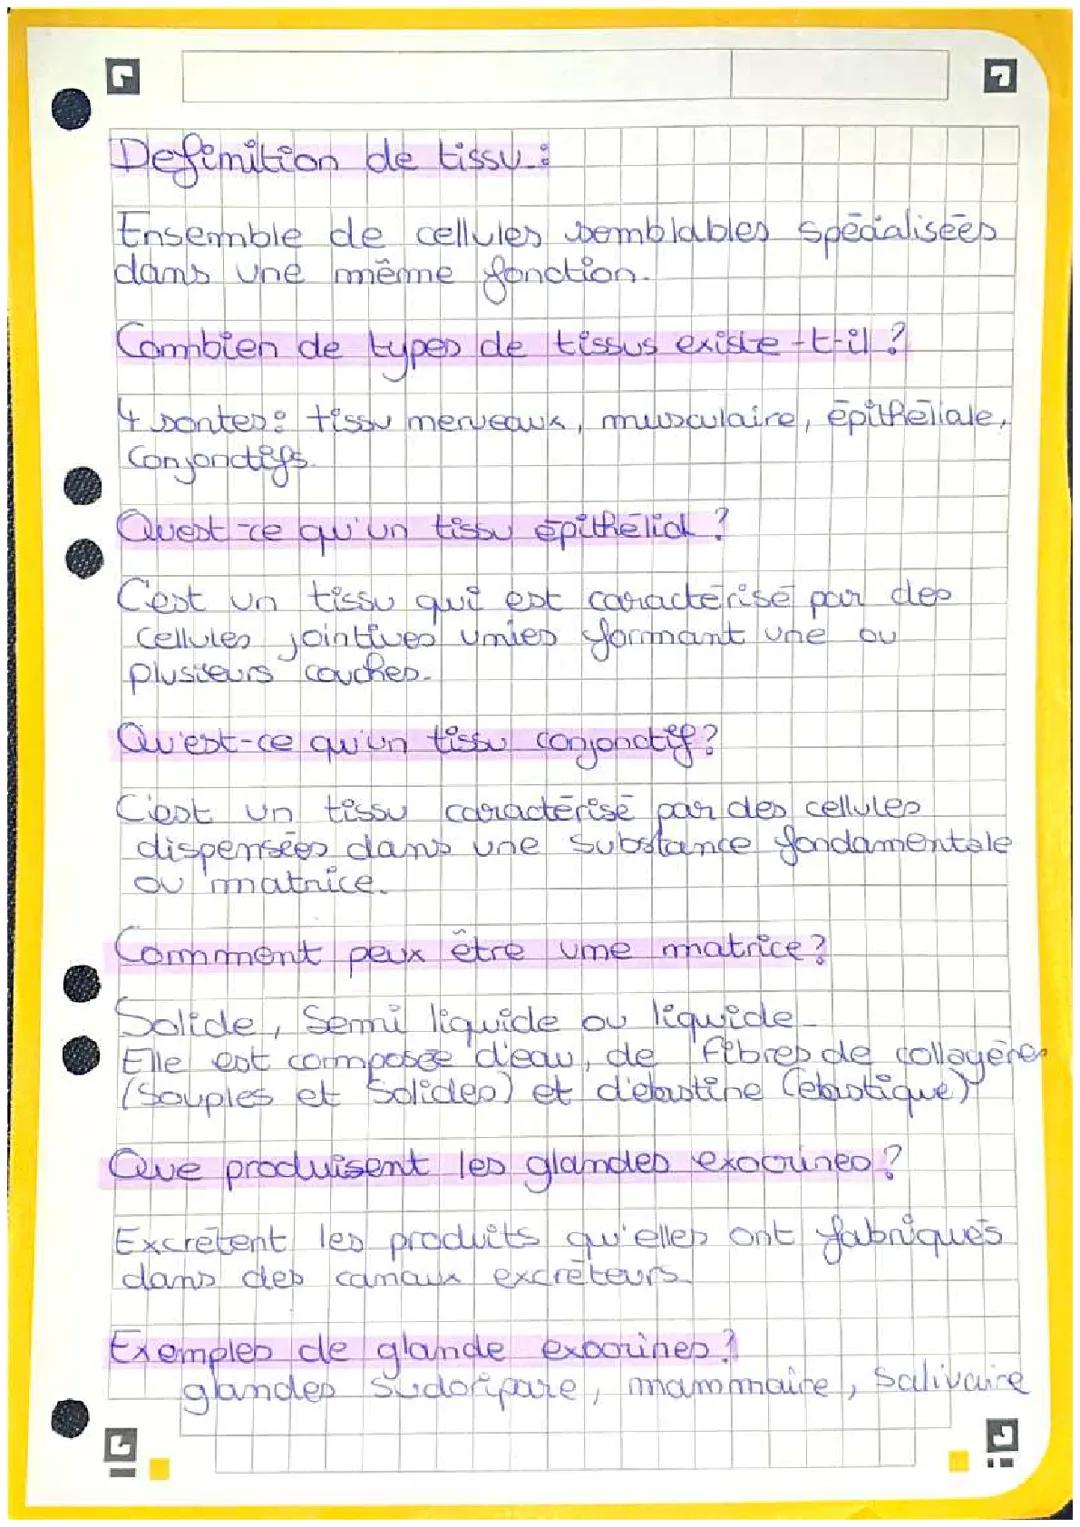 Definition de tissu :
Ensemble de cellules semblables spécialisées
dans une même fonction.
Combien de types de tissus existe-t-il ?
4 sortes : tissu nerveaux, musculaire, épithéliale,
Conjonctifs.
Quest-ce qu'un tissu épithélial ?
C'est un tissu qui est caractérisé par des
cellules jointives unies formant une ou
plusieurs couches.
Qu'est-ce qu'un tissu conjonctif ?
C'est un tissu caractérisé par des cellules
dispensées dans une substance fondamentale
ou matrice.
Comment peux être une matrice ?
Solide, Semi liquide ou liquide
Elle est composée d'eau, de fibres de collagènes
(Souples et Solides) et d'elastine (elastique)
Que produisent les glandes exocrines ?
Excrétent les produits qu'elles ont fabriqués
dans des canaux excréteurs.
Exemples de glande exocrines ?
glandes sudoripare, mammaire, salivaire